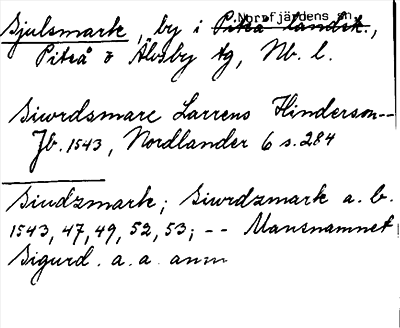 Sjulsmark, by i Piteå landsk., Norrfjärdens sn
Piteå o Älvsby tg, Nb. l.
Siwrdsmarc Larrens Hinderson--
Jb. 1543, Nordlander 6 s. 284
Siudzmark; Siwrdzmark a. b.
1543, 47, 49, 52, 53; -- Mansnamnet
Sigurd. a. a. anm